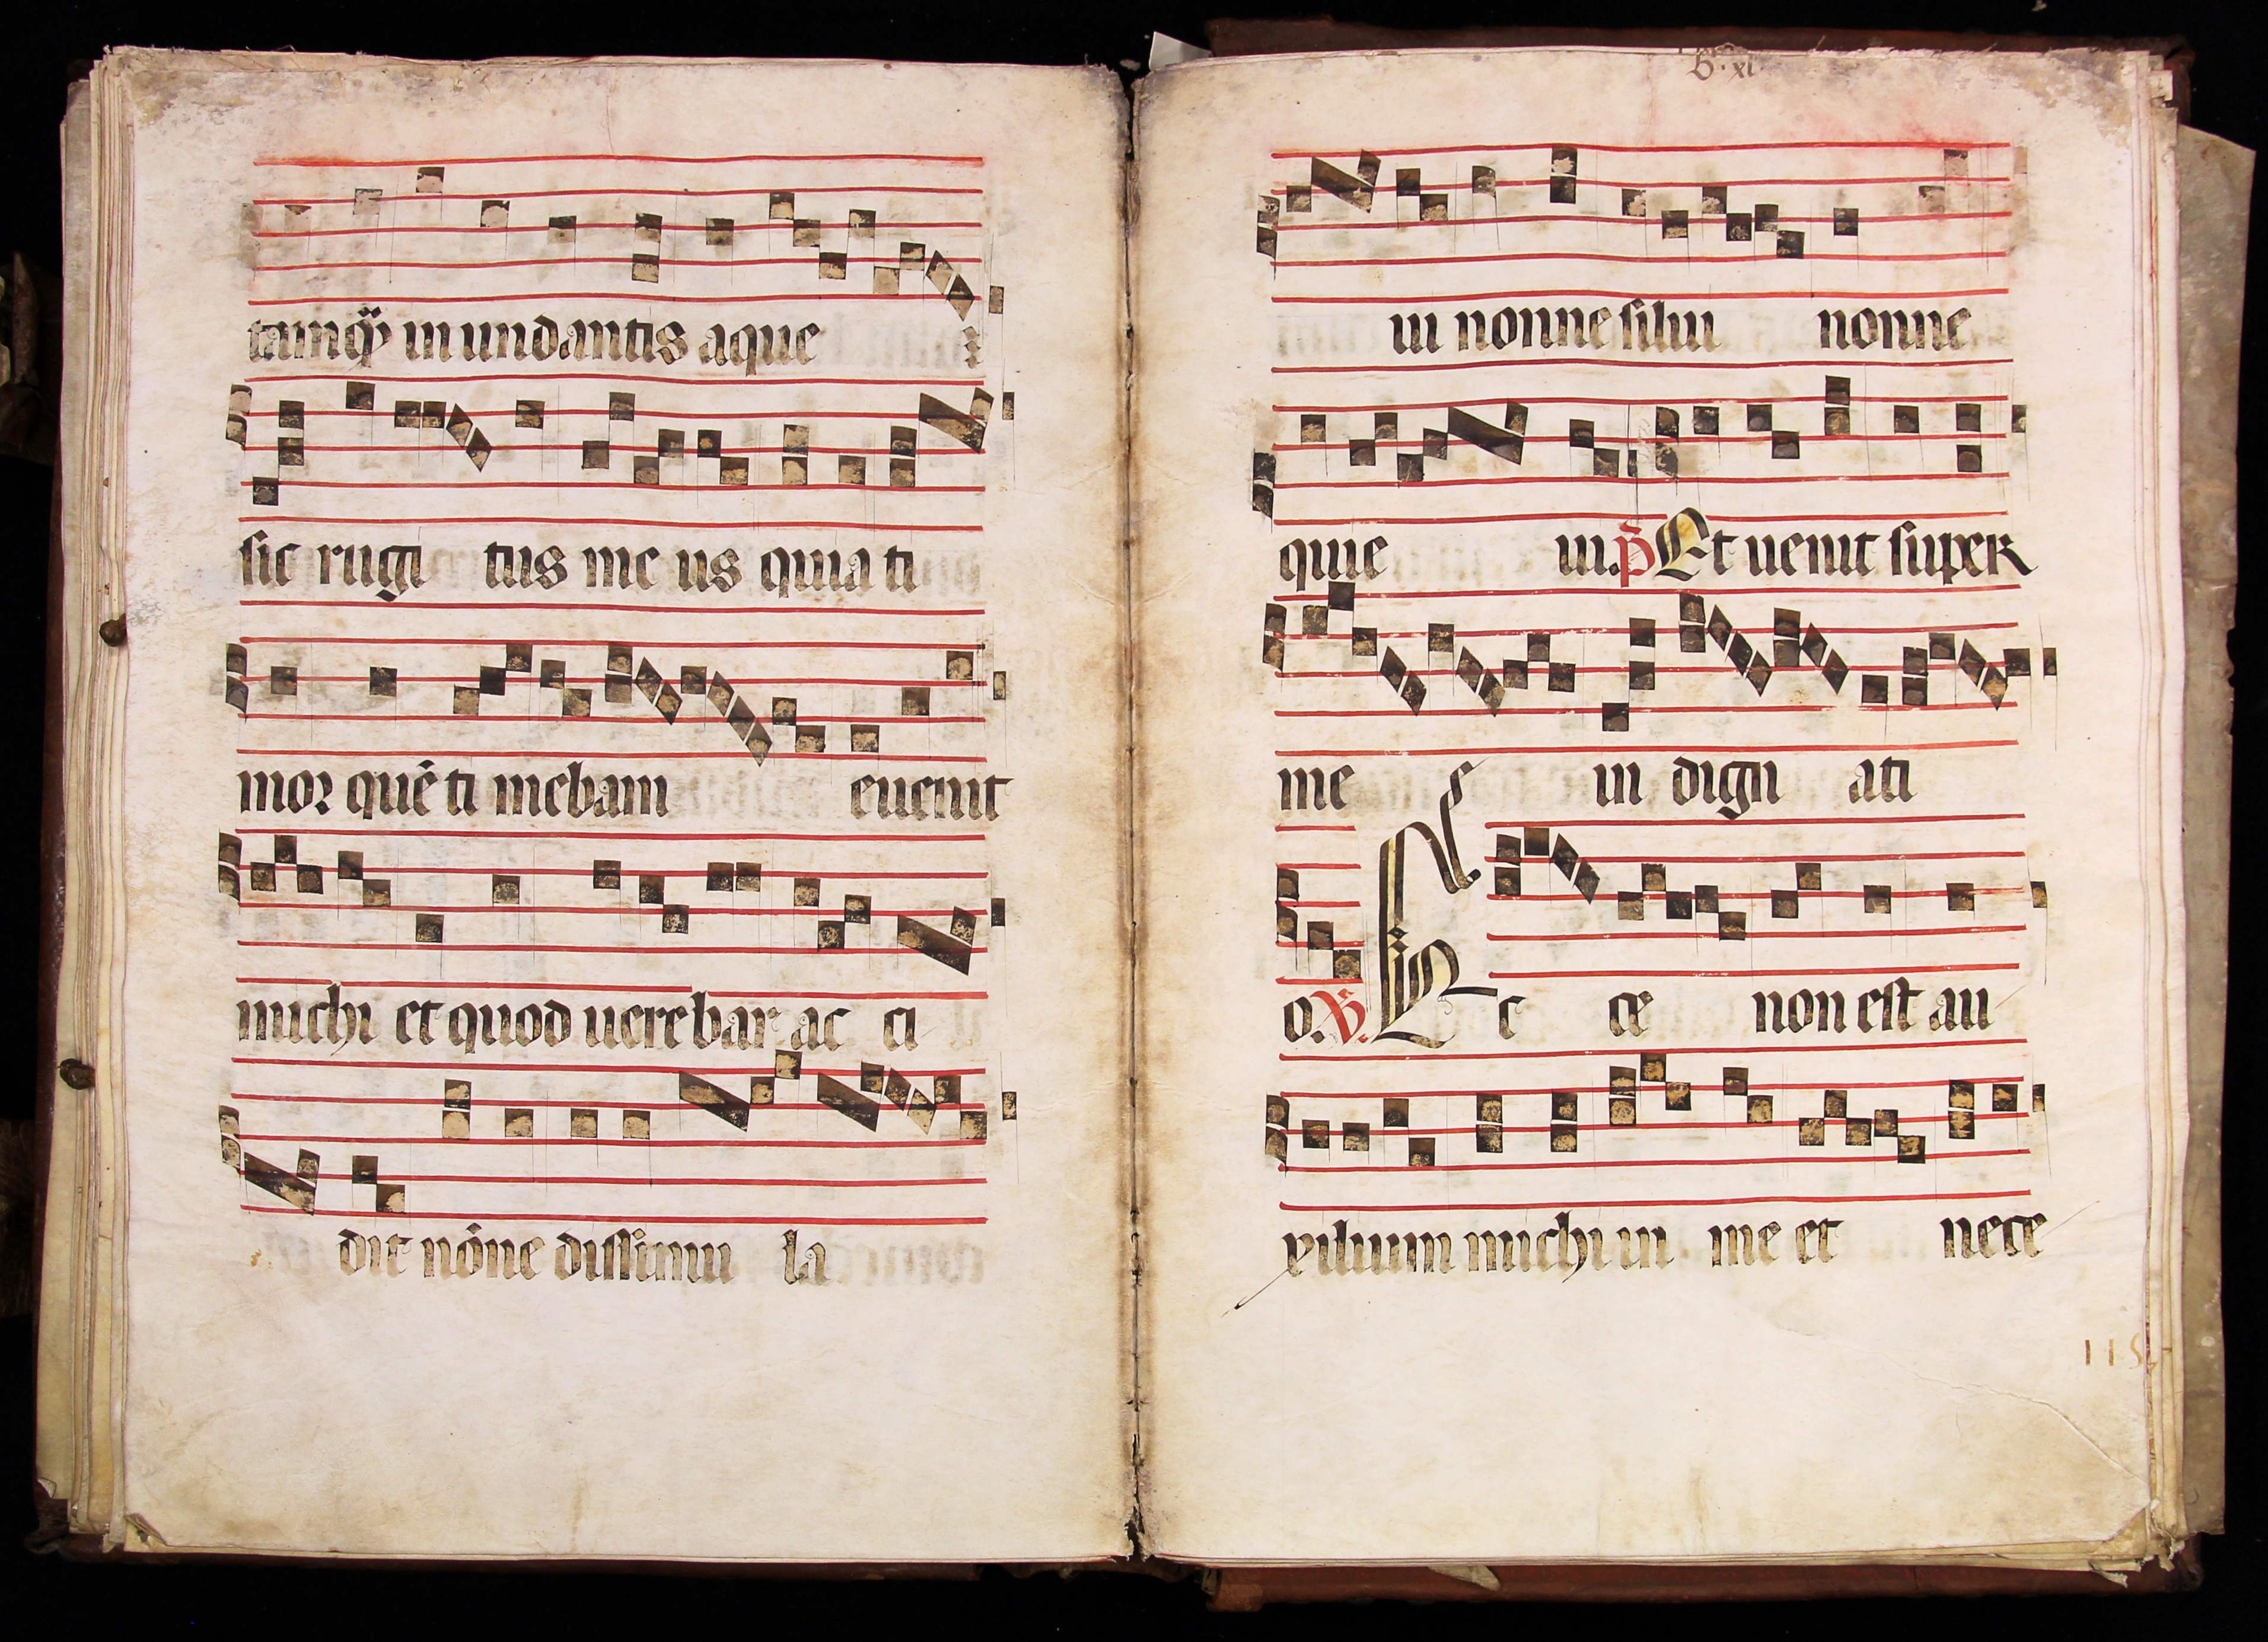 tamq̃ in undantis aque
sic rugi tus me us quia ti
mor quē ti mebam euenit
michi et quod uerebar ac ci
dit nōne dissimu la
ui nonne silui nonne
quie ui. p̄ Et uenit super
me in dign ati
o. ℣. Ec ce non est au
xilium michi in me et nece
115